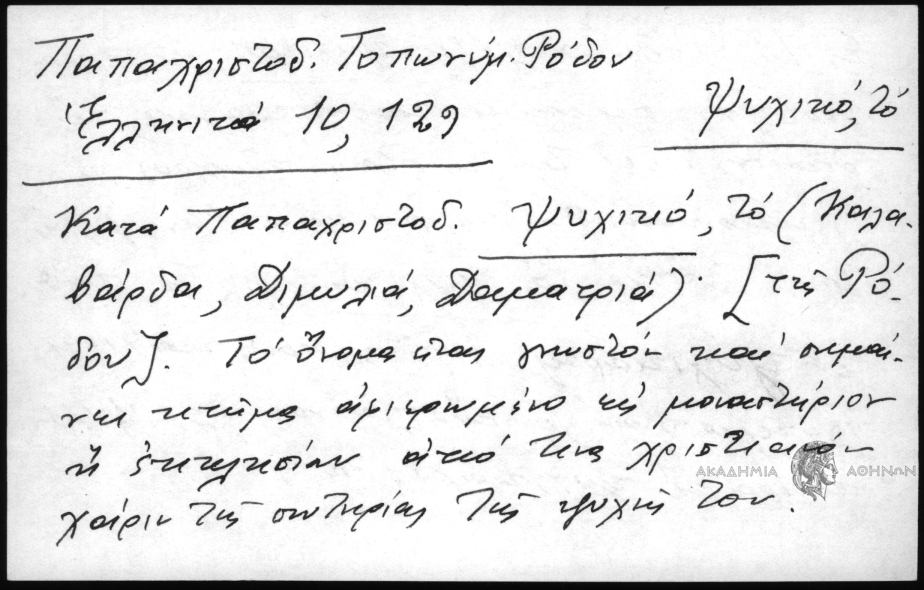 Παπαχριστοδ. Τοπωνύμ. Ρόδου
Ἑλληνικά 10, 129
Ψυχικό, τό
Κατά Παπαχριστοδ. Ψυχικό, τό (Καλα-
βάρδα, Διμυλιά, Δαματριά)· [τῆς Ρό-
δου]. Τό ὄνομα εἶναι γνωστόν καί σημαί-
νει κτῆμα ἀφιερωμένο εἰς μοναστήριον
ἤ ἐκκλησίαν ἀπό ἕνα χριστιανόν
χάριν τῆς σωτηρίας τῆς ψυχῆς του.
ΑΚΑΔΗΜΙΑ ΑΘΗΝΩΝ